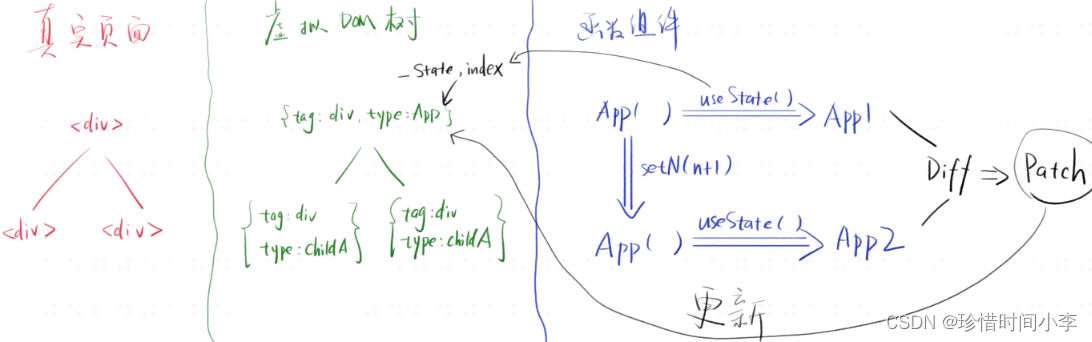 真实页面
<div>
<div>
<div>
虚拟 DOM 树
_state, index
{tag: div, type: App}
{tag: div
type: childA}
{tag: div
type: childA}
函数组件
App( )
useState()
App1
setN(n+1)
App( )
useState()
App2
Diff
Patch
更新
CSDN @珍惜时间小李